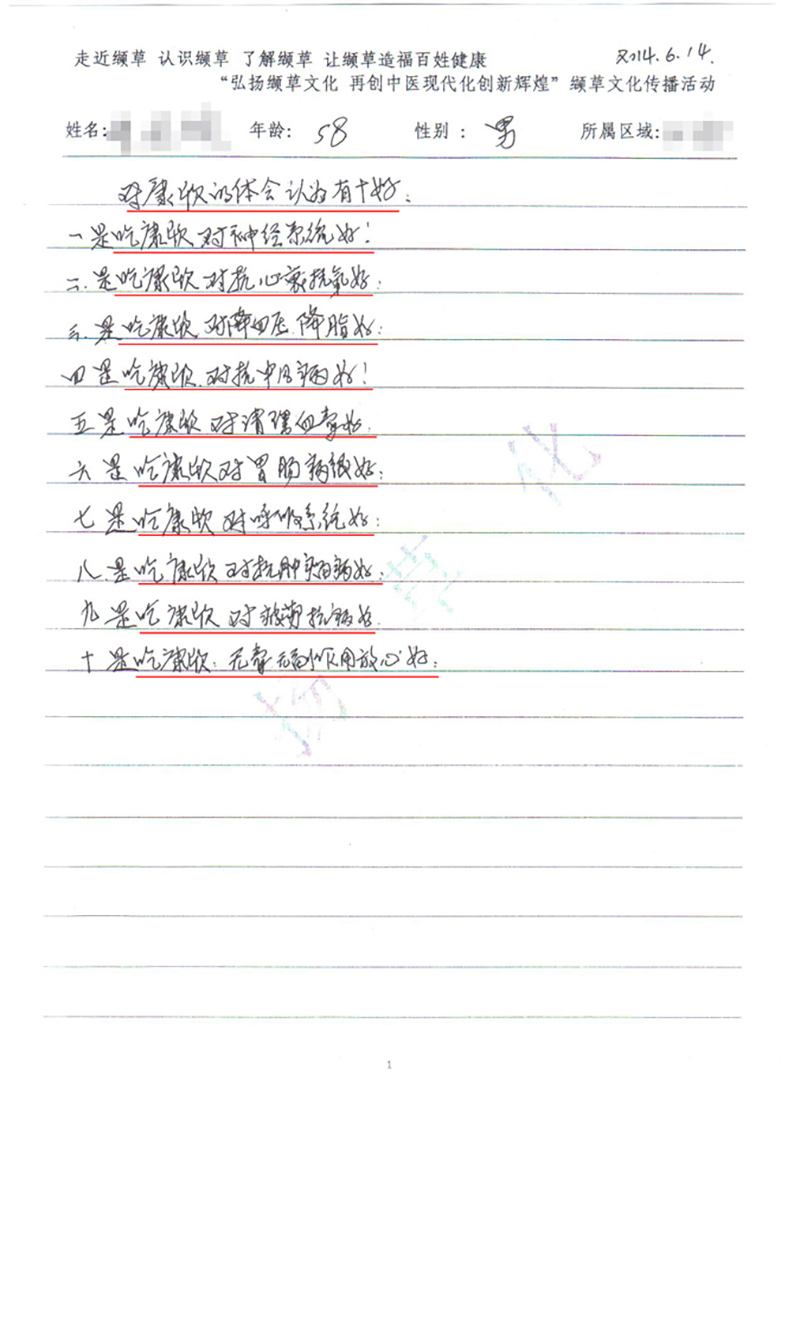 走近缬草 认识缬草 了解缬草 让缬草造福百姓健康 2014.6.14.
“弘扬缬草文化 再创中医现代化创新辉煌” 缬草文化传播活动
姓名: 年龄: 58 性别: 男 所属区域:
对康欣的体会认为有十好:
一是吃康欣对神经系统好!
二.是吃康欣对抗心衰抗氧好:
三.是吃康欣.对降血压.降脂好:
四是吃康欣.对抗中风病好!
五是吃康欣对清理血毒好.
六是吃康欣对胃肠病很好:
七是吃康欣对呼吸系统好:
八.是吃康欣对抗肿瘤病好:
九是吃康欣对抗病好.
十是吃康欣:无毒无副作用放心好:
扬 草 化
1